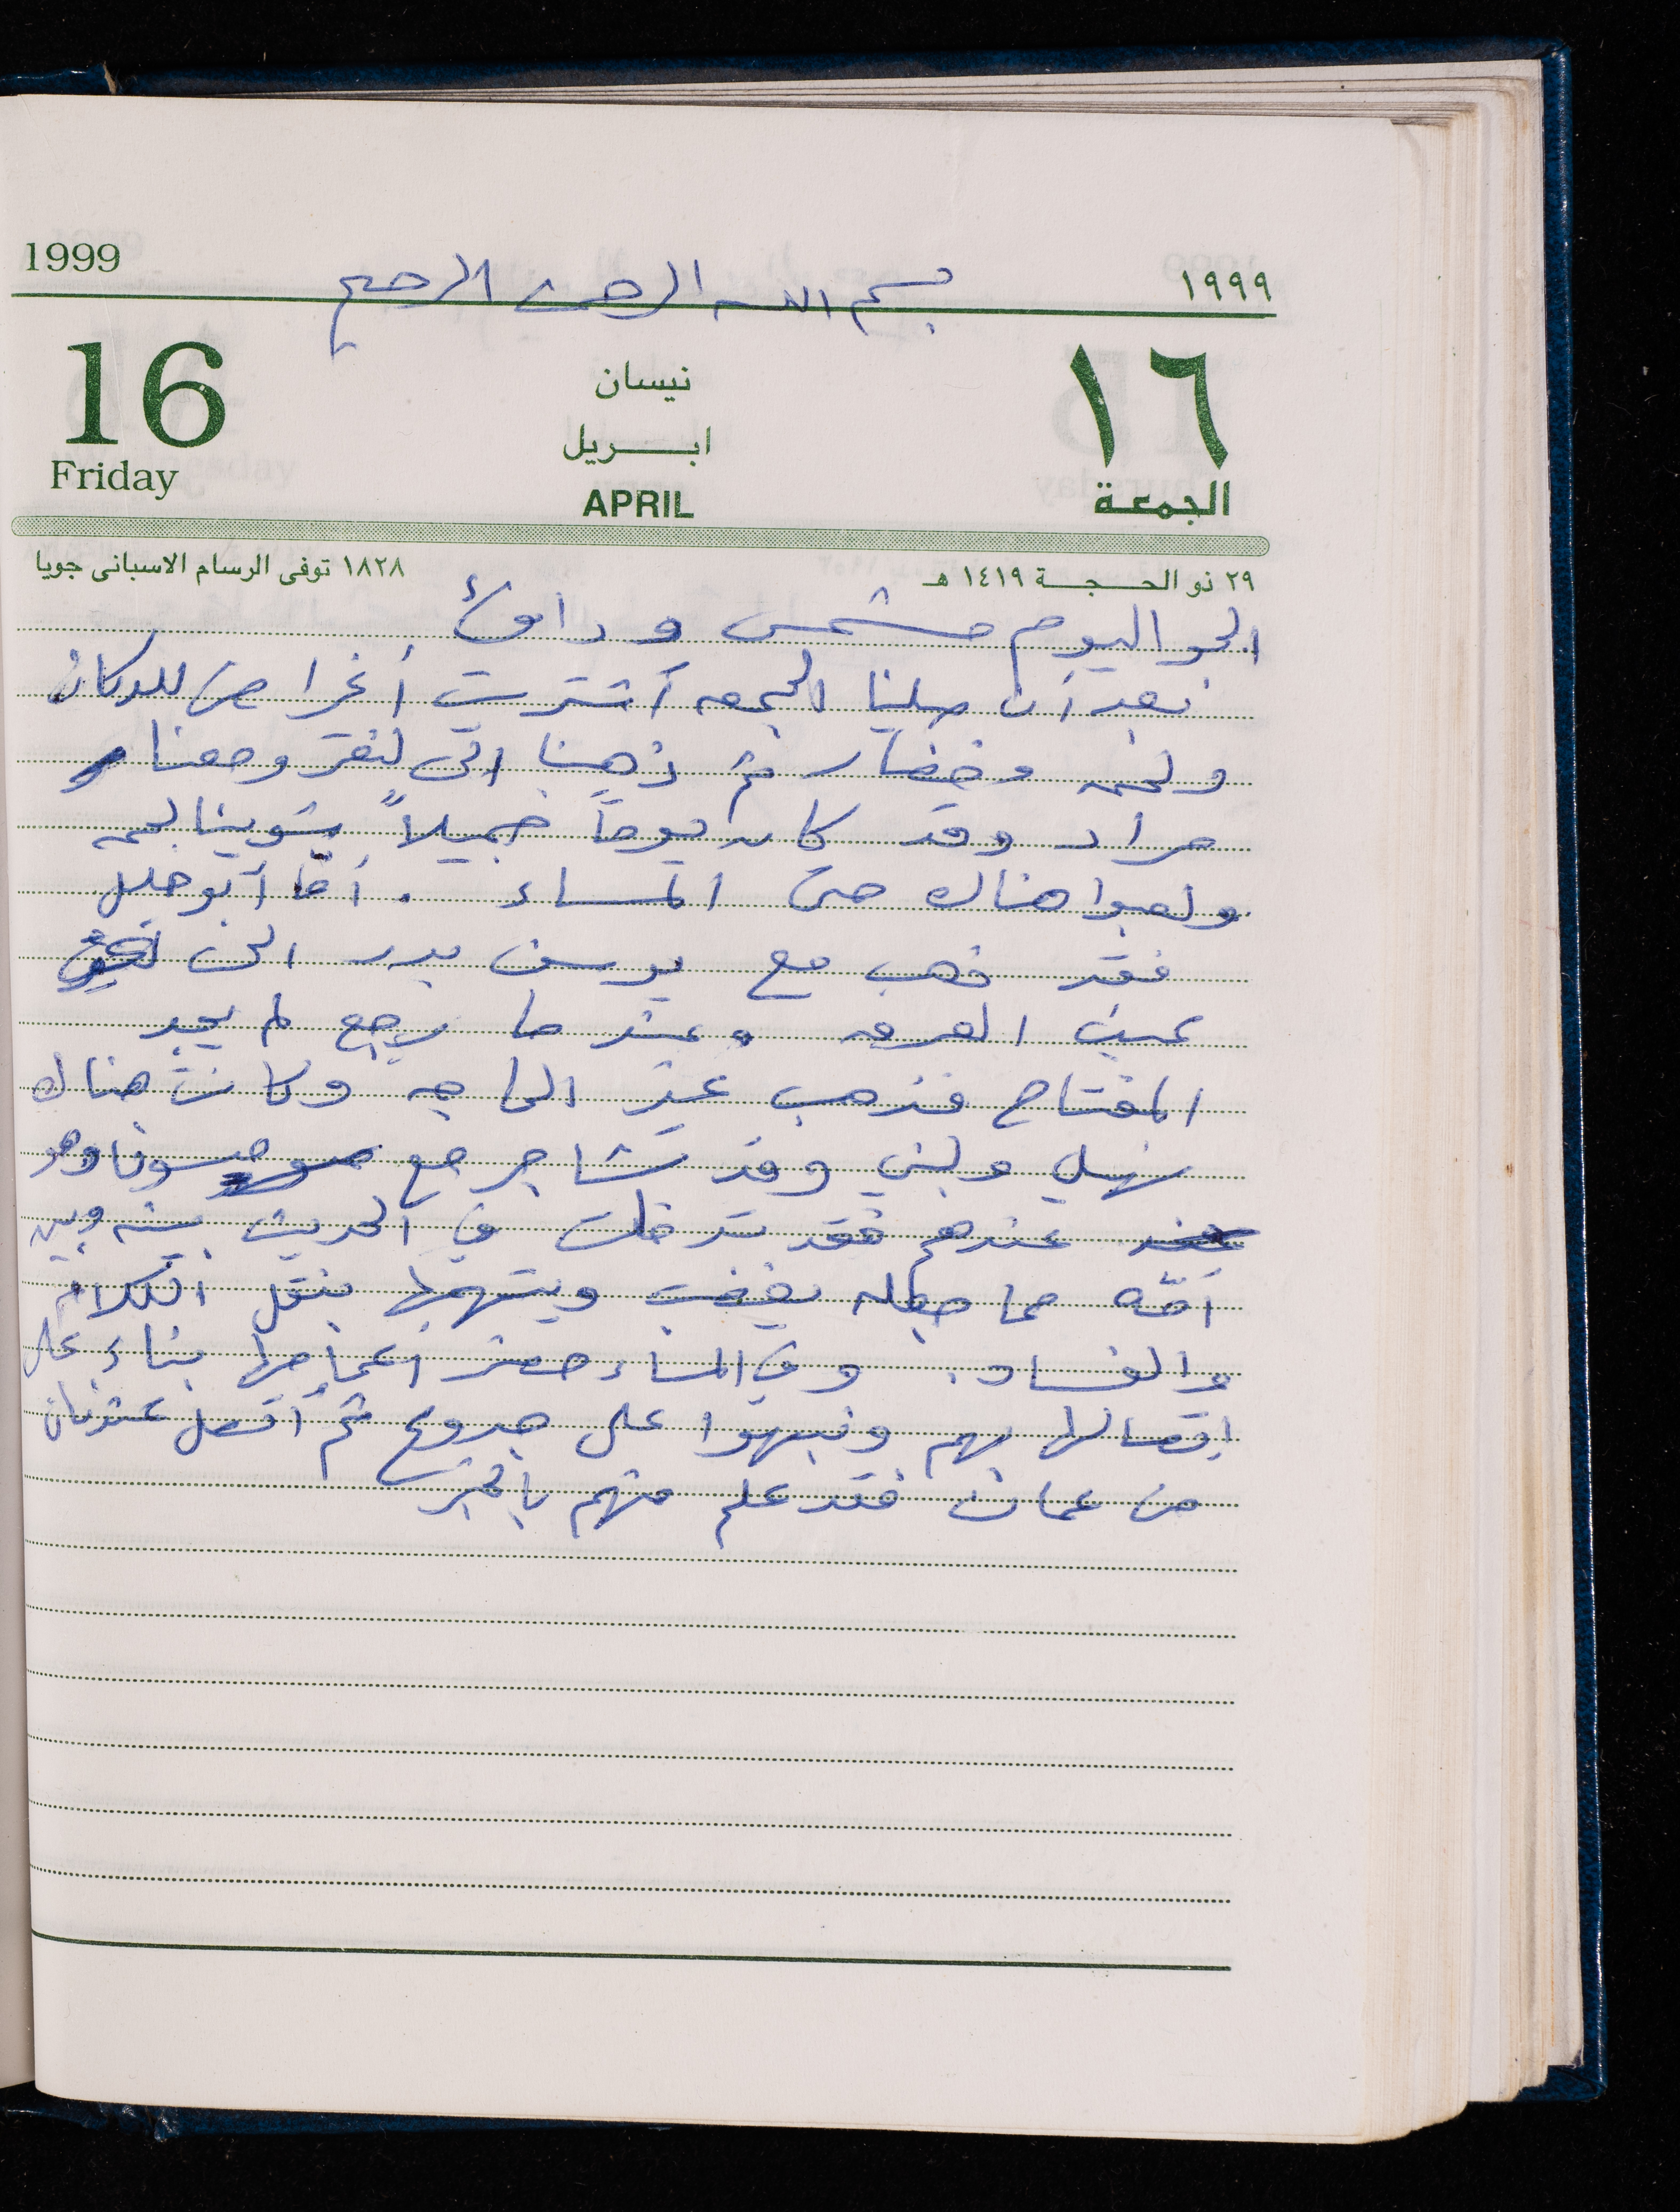 1999
١٩٩٩
بسم الله الرحمن الرحيم
16
نيسان
١٦
ابريل
Friday
APRIL
الجمعة
١٨٢٨ توفى الرسام الاسبانى جويا
٢٩ ذو الحجة ١٤١٩ هـ
الجو اليوم مشمس ودافئ
بعد أن صلينا الجمعه أشتريت أغراض للدكان
ولحمه وخضار ثم ذهبنا الى ومعنا
مراد وقد كان يوماً جميلاً شوينا لحمه
ولعبوا هناك حتى المساء . أما أبو خليل
فقد ذهب مع يوسف بدر الى
عين العروعندما رجع لم يجد
المفتاح فذهب عند الحاجه وكانت هناك
ولبنى وقد تشاجر مع سوسو وهو
عندهم فقد تدخلت في الحديث بينه وبين
أمّه مما جعله يغضب ويتهمها بنقل الكلام
والفساد. وفي المساء حضر أعمامها بناء على
إتصالها بهم ونبهوا على جدوع ثم أتصل عدنان
من عمان فقد علم منهم بالخبر